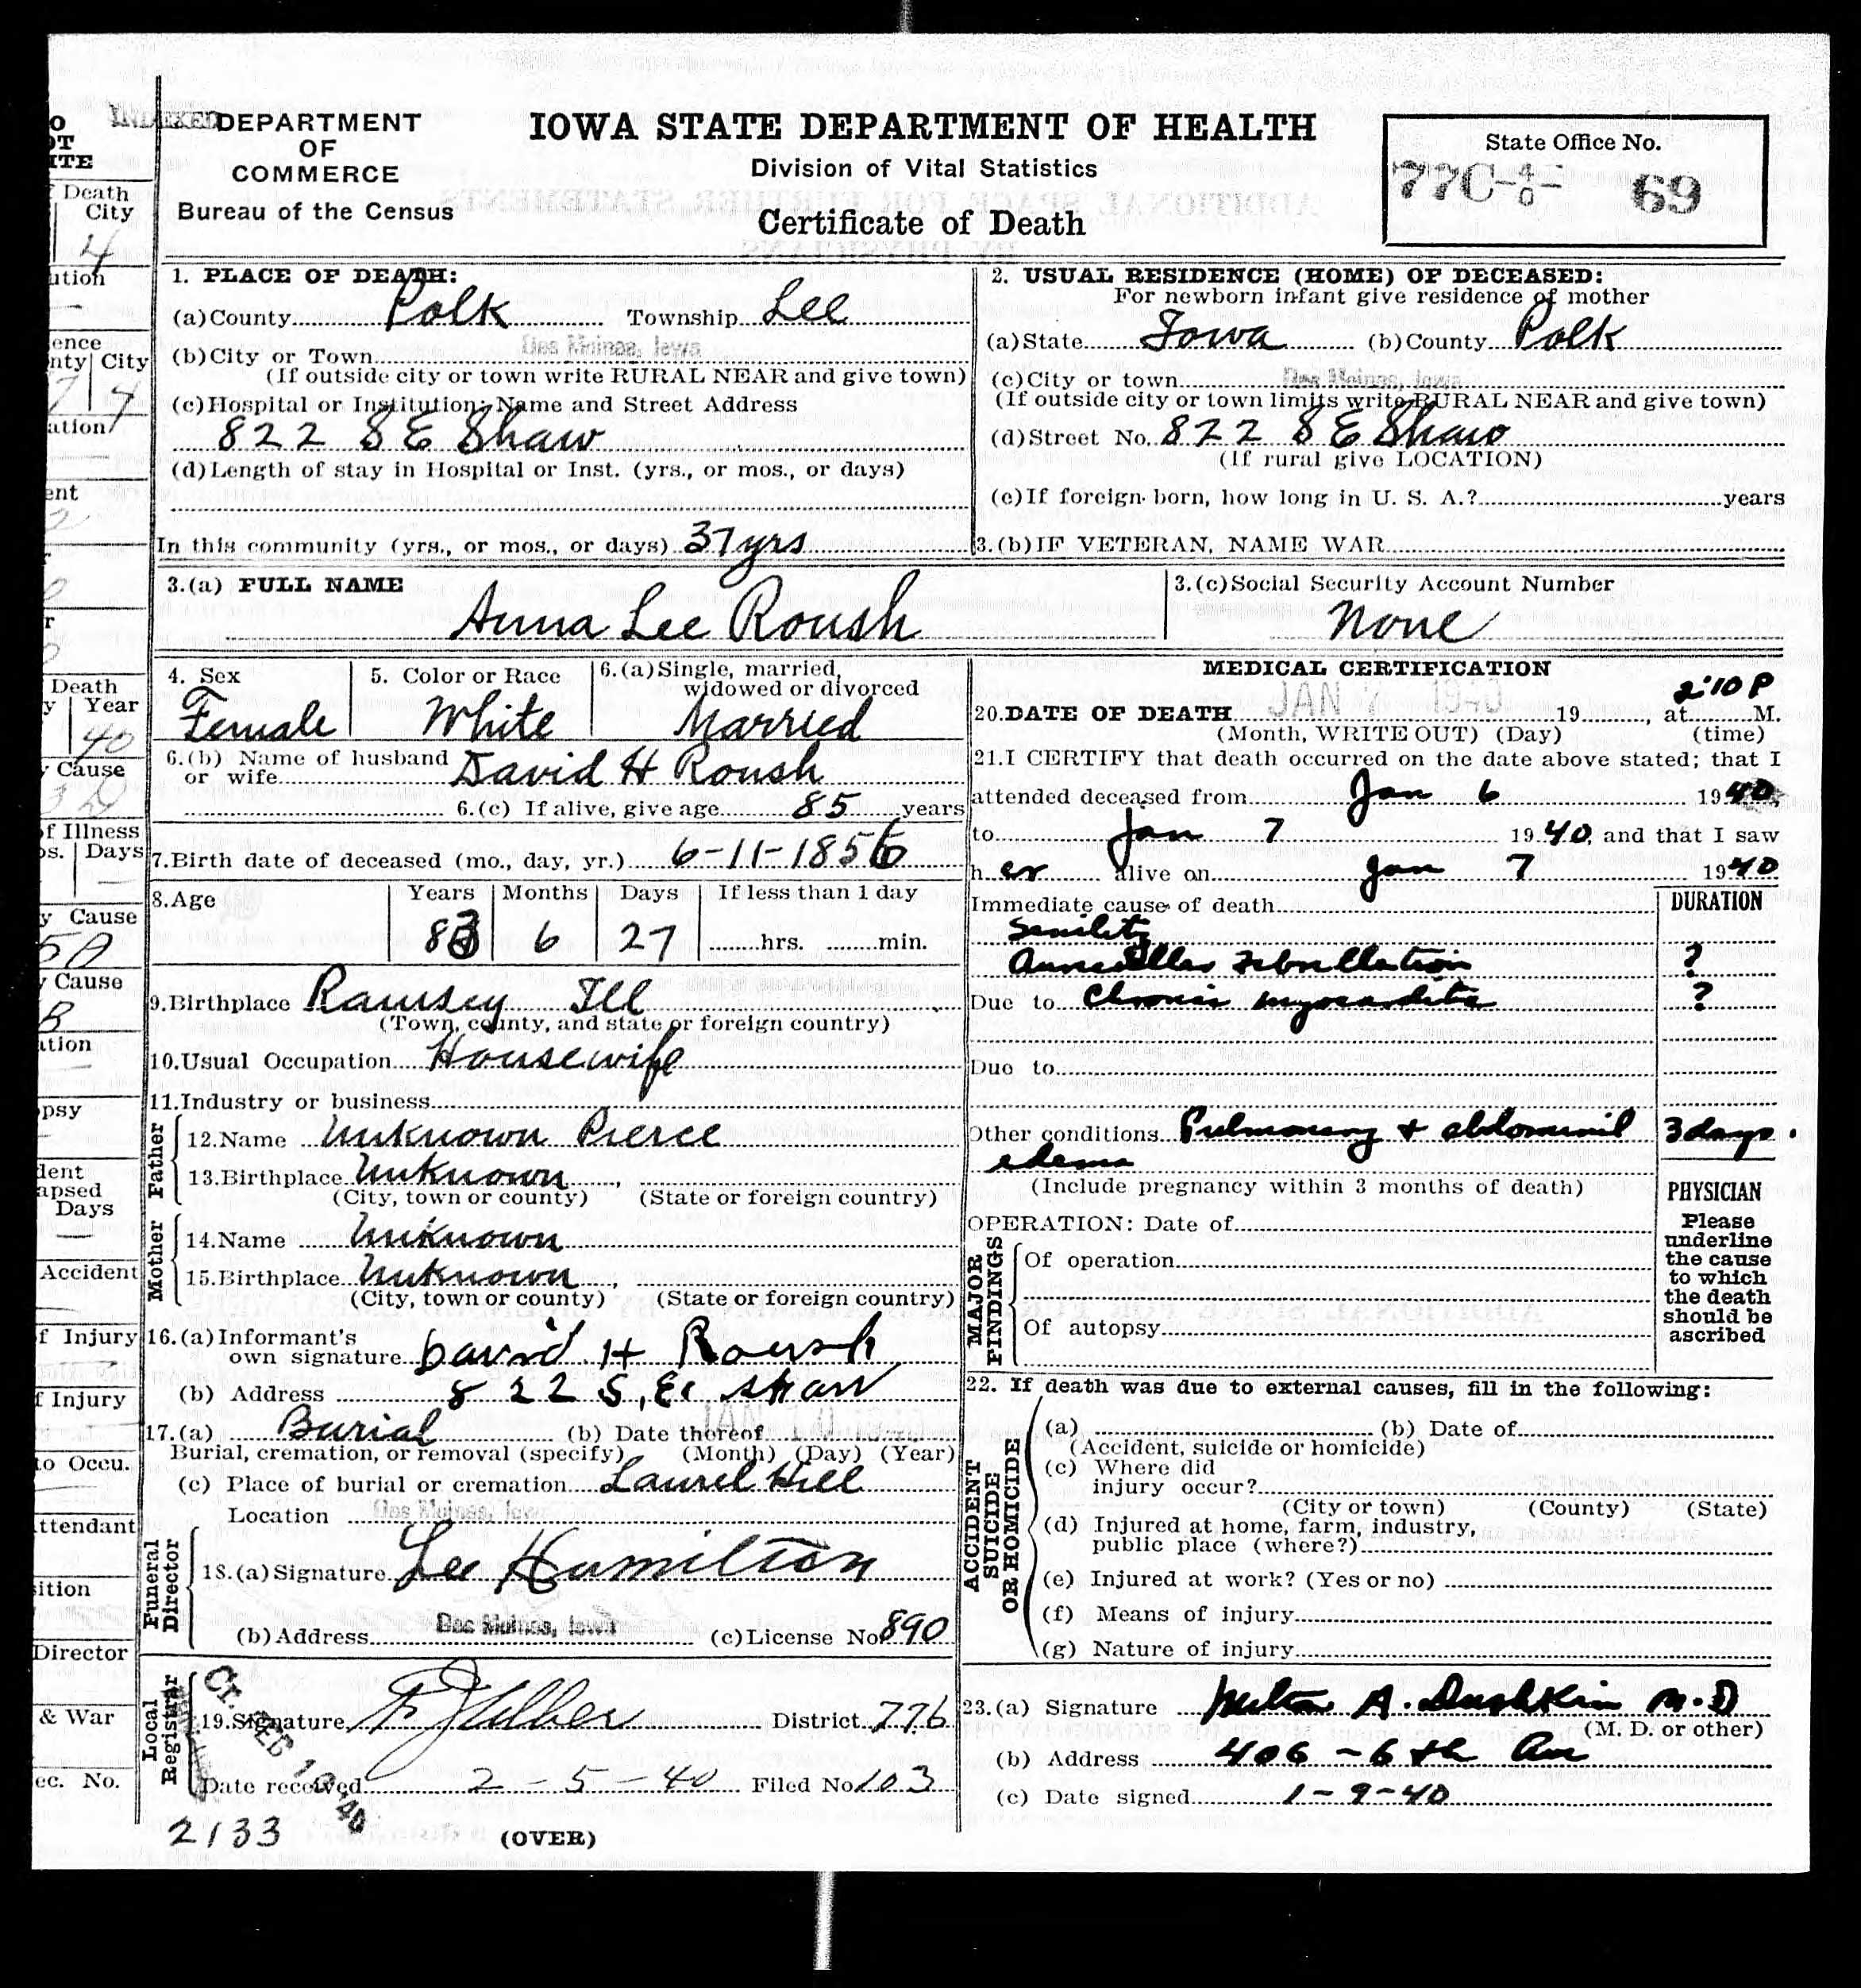 INDEXED
DEPARTMENT
OF
COMMERCE
Bureau of the Census
IOWA STATE DEPARTMENT OF HEALTH
Division of Vital Statistics
Certificate of Death
State Office No.
77C-4/0- 69
1. PLACE OF DEATH:
(a) County Polk Township Lee
(b) City or Town Des Moines, Iowa
(If outside city or town write RURAL NEAR and give town)
(c) Hospital or Institution: Name and Street Address
822 S E Shaw
(d) Length of stay in Hospital or Inst. (yrs., or mos., or days)
In this community (yrs., or mos., or days) 37 yrs
2. USUAL RESIDENCE (HOME) OF DECEASED:
For newborn infant give residence of mother
(a) State Iowa (b) County Polk
(c) City or town Des Moines, Iowa
(If outside city or town limits write RURAL NEAR and give town)
(d) Street No. 822 S E Shaw
(If rural give LOCATION)
(e) If foreign born, how long in U. S. A.? years
3. (b) IF VETERAN, NAME WAR
3. (a) FULL NAME
Anna Lee Roush
3. (c) Social Security Account Number
None
4. Sex
Female
5. Color or Race
White
6. (a) Single, married,
widowed or divorced
Married
6. (b) Name of husband
or wife David H Roush
6. (c) If alive, give age 85 years
7. Birth date of deceased (mo., day, yr.) 6-11-1856
8. Age
Years Months Days If less than 1 day
83 6 27 hrs. min.
9. Birthplace Ramsey Ill
(Town, county, and state or foreign country)
10. Usual Occupation Housewife
11. Industry or business
Father
12. Name Unknown Pierce
13. Birthplace Unknown
(City, town or county) (State or foreign country)
Mother
14. Name Unknown
15. Birthplace Unknown
(City, town or county) (State or foreign country)
16. (a) Informant's
own signature David H Roush
(b) Address 822 S, E. Shaw
17. (a) Burial (b) Date thereof JAN
Burial, cremation, or removal (specify) (Month) (Day) (Year)
(c) Place of burial or cremation Laurel Hill
Location Des Moines, Iowa
Funeral Director
18. (a) Signature Lee Hamilton
(b) Address Des Moines, Iowa (c) License No. 890
Local Registrar
19. Signature District 776
Date received 2-5-40 Filed No. 103
2133
(OVER)
MEDICAL CERTIFICATION
20. DATE OF DEATH JAN 19 , at 2:10 P M.
(Month, WRITE OUT) (Day) (time)
21. I CERTIFY that death occurred on the date above stated; that I
attended deceased from Jan 6 1940
to Jan 7 1940, and that I saw
her alive on Jan 7 1940
Immediate cause of death DURATION
Senility
Auricular Fibrillation ?
Due to Chronic myocarditis ?
Due to
Other conditions Pulmonary + abdominal 3 days.
edema
(Include pregnancy within 3 months of death)
OPERATION: Date of
MAJOR FINDINGS
Of operation
Of autopsy
PHYSICIAN
Please
underline
the cause
to which
the death
should be
ascribed
22. If death was due to external causes, fill in the following:
ACCIDENT SUICIDE OR HOMICIDE
(a) (b) Date of
(Accident, suicide or homicide)
(c) Where did
injury occur?
(City or town) (County) (State)
(d) Injured at home, farm, industry,
public place (where?)
(e) Injured at work? (Yes or no)
(f) Means of injury
(g) Nature of injury
23. (a) Signature Milton A. Dushkin M.D
(M. D. or other)
(b) Address 406-6th Av
(c) Date signed 1-9-40